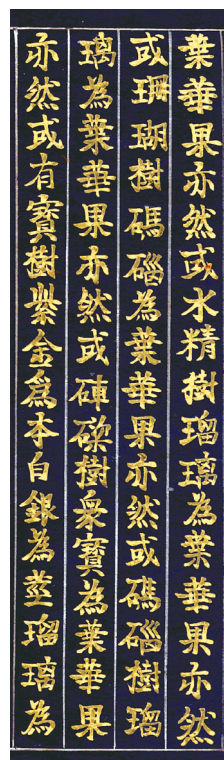 葉華果亦然或水精樹瑠璃為葉華果亦然
或珊瑚樹碼碯為葉華果亦然或碼碯樹瑠
璃為葉華果亦然或硨磲樹衆寶為葉華果
亦然或有寶樹紫金為本白銀為莖瑠璃為